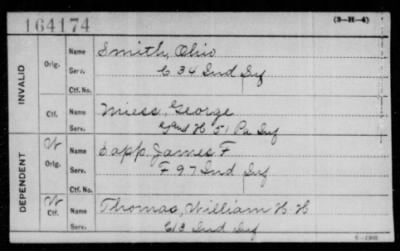 164174
(3-H-4)
INVALID
Orig.
Name
Smith, Ohio
Serv.
C 34 Ind Inf
Ctf. No.
Ctf.
Name
Miess, George
Serv.
H 51 Pa Inf
DEPENDENT
Orig.
Name
Sapp. James F
Serv.
F 97 Ind Inf
Ctf. No.
Ctf.
Name
Thomas, William H H
Serv.
Ind Inf